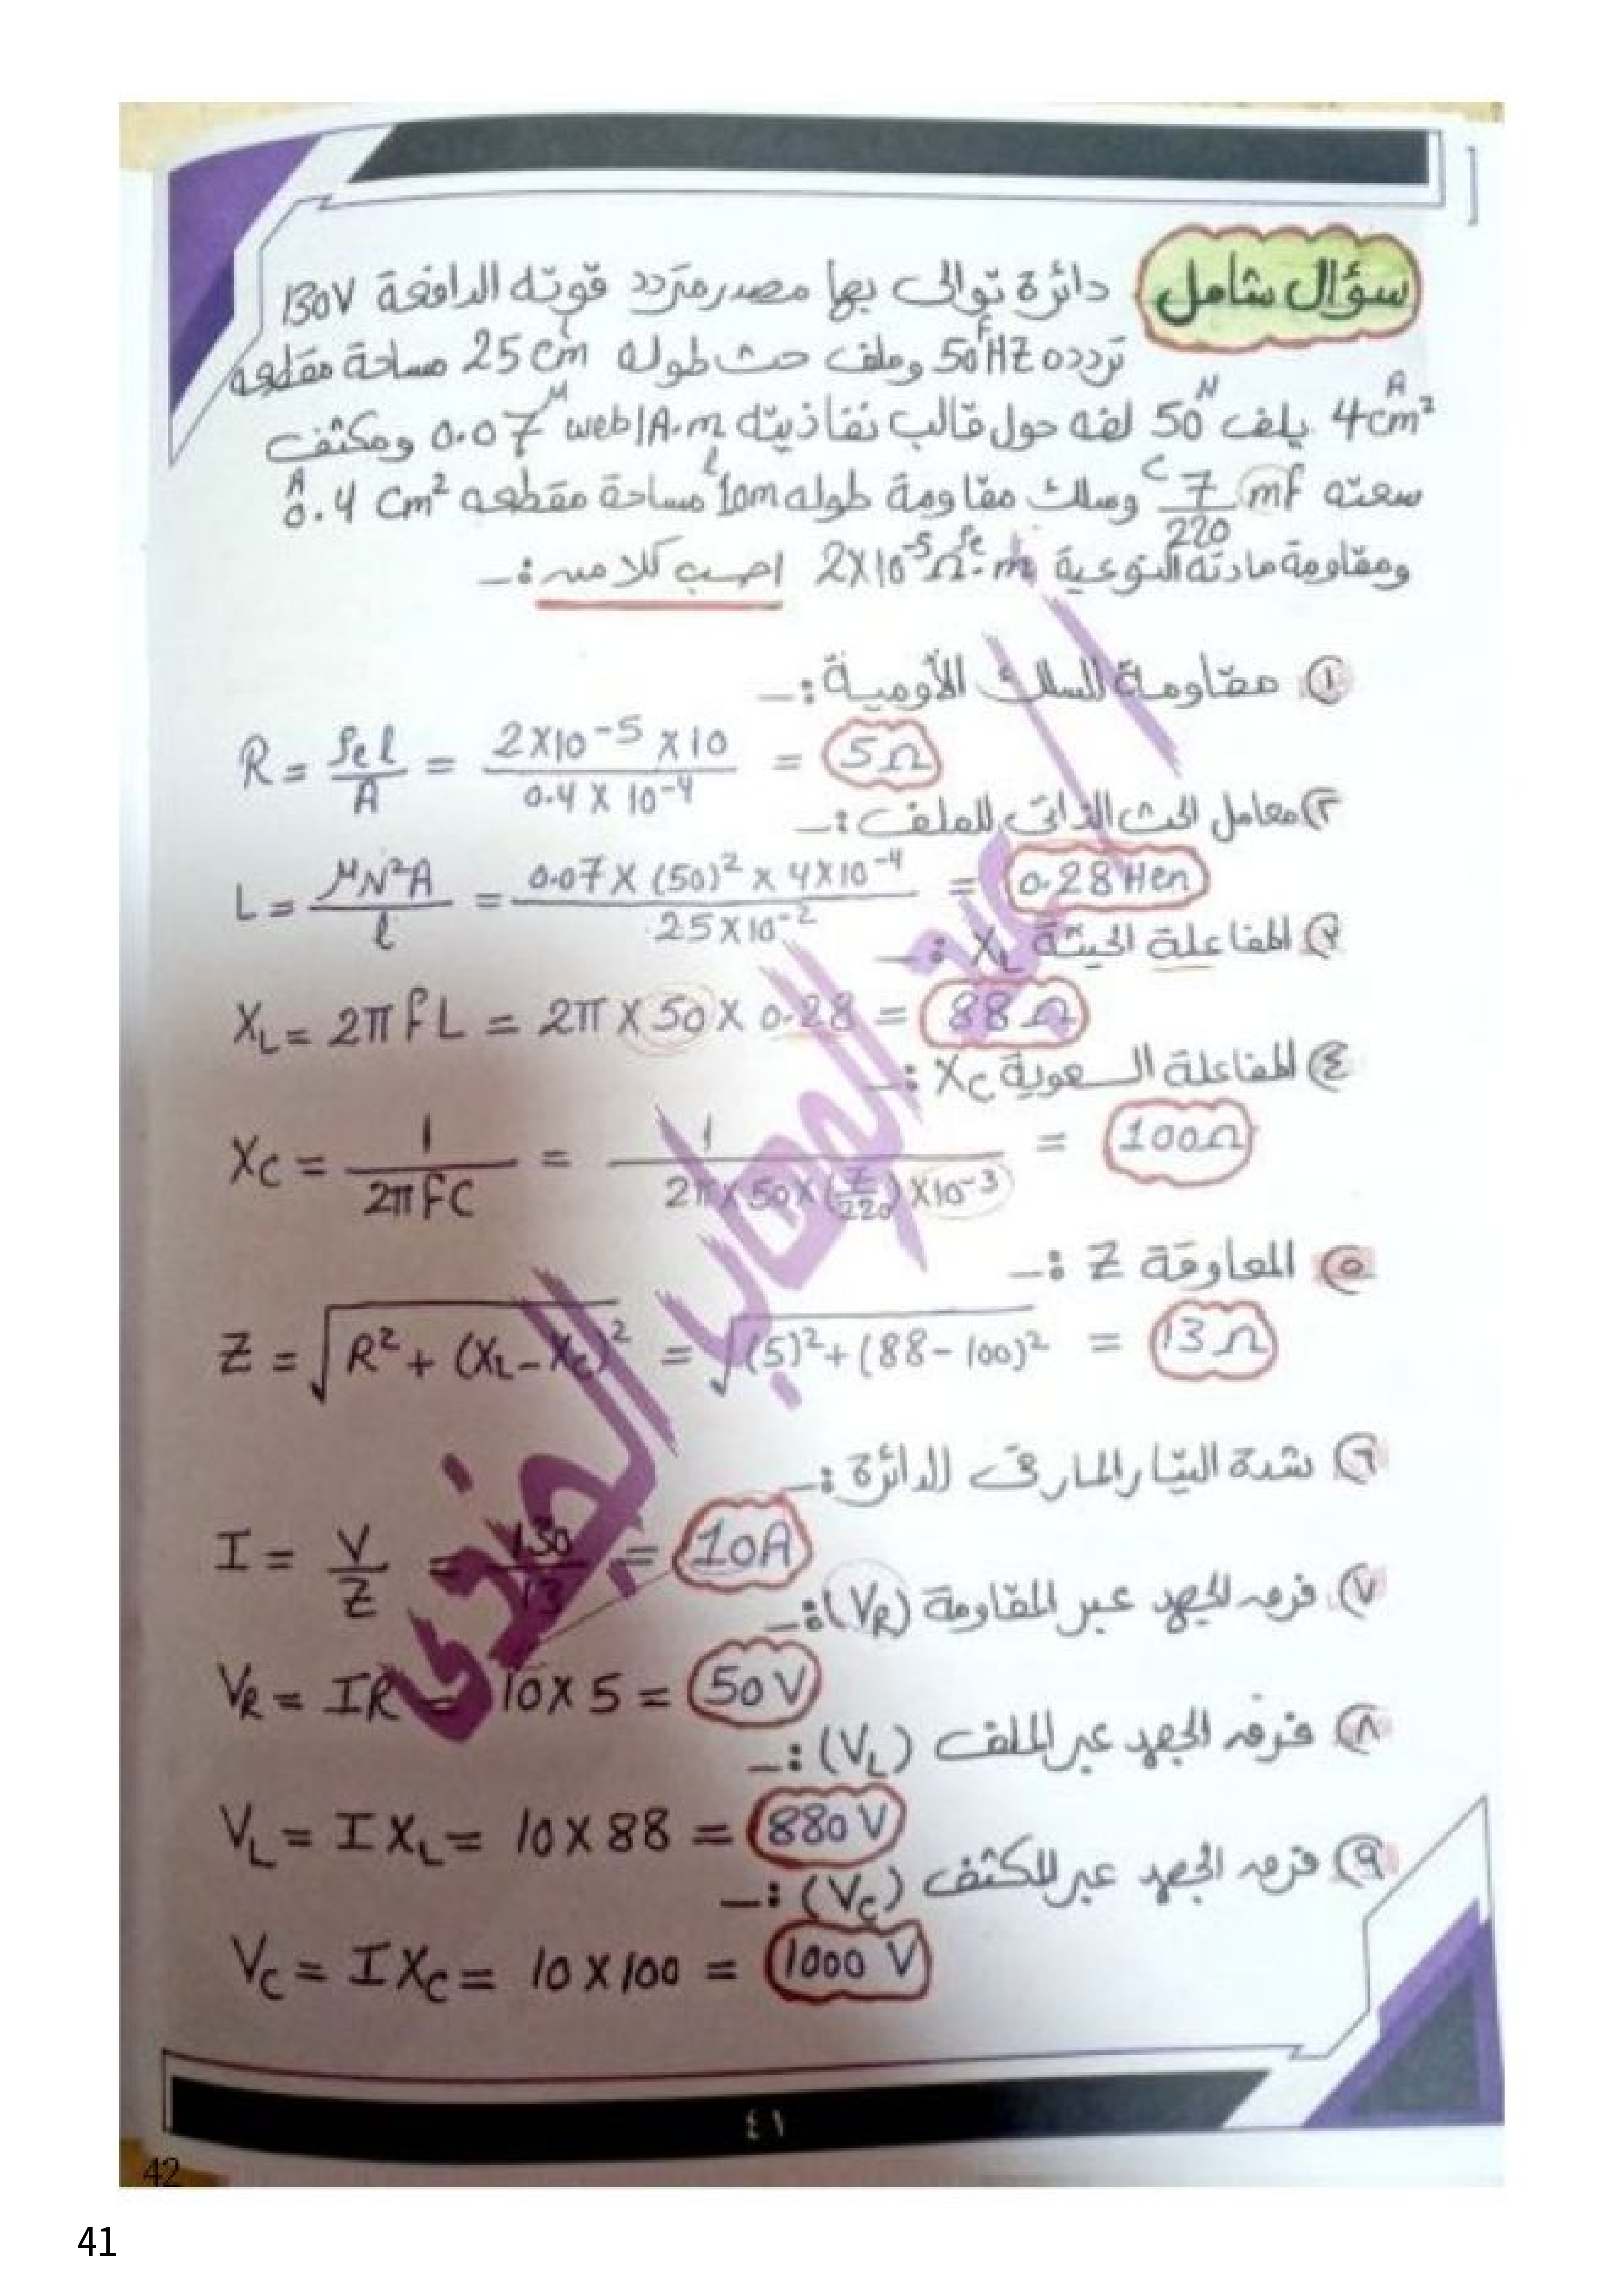 سؤال شامل دائرة توالى بها مصدر متردد قوته الدافعة 130V
تردده 50HZ وملف حث طوله 25 cm مساحة مقطعه
4cm² يلف 50 لفه حول قالب نفاذيته 0.07 web/A.m ومكثف
سعته 7/220 mf وسلك مقاومة طوله 10m مساحة مقطعه 0.4 Cm²
ومقاومة مادته النوعية 2X10⁻⁵Ω.m احسب كلا من :-
① مقاومة السلك الأومية :-
R = ρe l / A = 2X10⁻⁵ X 10 / 0.4 X 10⁻⁴ = 5Ω
② معامل الحث الذاتى للملف :-
L = μN²A / l = 0.07 X (50)² X 4X10⁻⁴ / 25X10⁻² = 0.28 Hen
③ المفاعلة الحيثة XL :-
XL = 2π f L = 2π X 50 X 0.28 = 88Ω
④ المفاعلة السعوية XC :-
XC = 1 / 2π f C = 1 / 2π X 50 X (7/220) X 10⁻³ = 100Ω
⑤ المعاوقة Z :-
Z = √R² + (XL - XC)² = √(5)² + (88 - 100)² = 13Ω
⑥ شدة التيار المار فى الدائرة :-
I = V / Z = 130 / 13 = 10A
⑦ فرق الجهد عبر المقاومة (VR) :-
VR = IR = 10X 5 = 50V
⑧ فرق الجهد عبر الملف (VL) :-
VL = I XL = 10 X 88 = 880 V
⑨ فرق الجهد عبر المكثف (VC) :-
VC = I XC = 10 X 100 = 1000 V
٤١
42
41